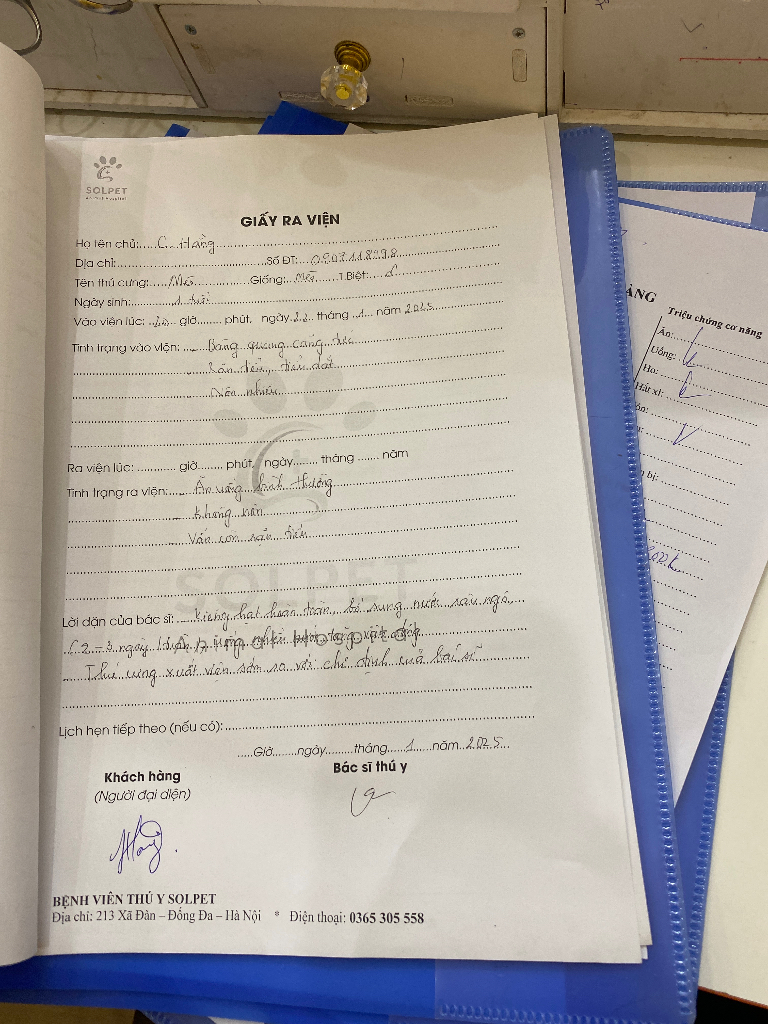 SOLPET
GIẤY RA VIỆN
Họ tên chủ: C. Hằng
Địa chỉ: Số ĐT:
Tên thú cưng: Mèo Giống: Mèo T.Biệt:
Ngày sinh: 1 tuổi
Vào viện lúc: 20 giờ phút, ngày 22 tháng 1 năm 2025
Tình trạng vào viện: Bàng quang căng tức
Són tiểu, tiểu dắt
Nôn nhiều
Ra viện lúc: giờ phút, ngày tháng năm
Tình trạng ra viện: Ăn uống bình thường
Không nôn
Vẫn còn són tiểu
Lời dặn của bác sĩ: Kiêng hạt hoàn toàn, bổ sung nước râu ngô
(2-3 ngày 1 tuần
Animal Hospital
Thú cưng xuất viện sớm so với chỉ định của bác sĩ
SOLPET
Lịch hẹn tiếp theo (nếu có):
Giờ ngày tháng 1 năm 2025
Khách hàng Bác sĩ thú y
(Người đại diện)
BỆNH VIỆN THÚ Y SOLPET
Địa chỉ: 213 Xã Đàn – Đống Đa – Hà Nội * Điện thoại: 0365 305 558
Triệu chứng cơ năng
Ăn:
Uống:
Ho:
Hắt xì: